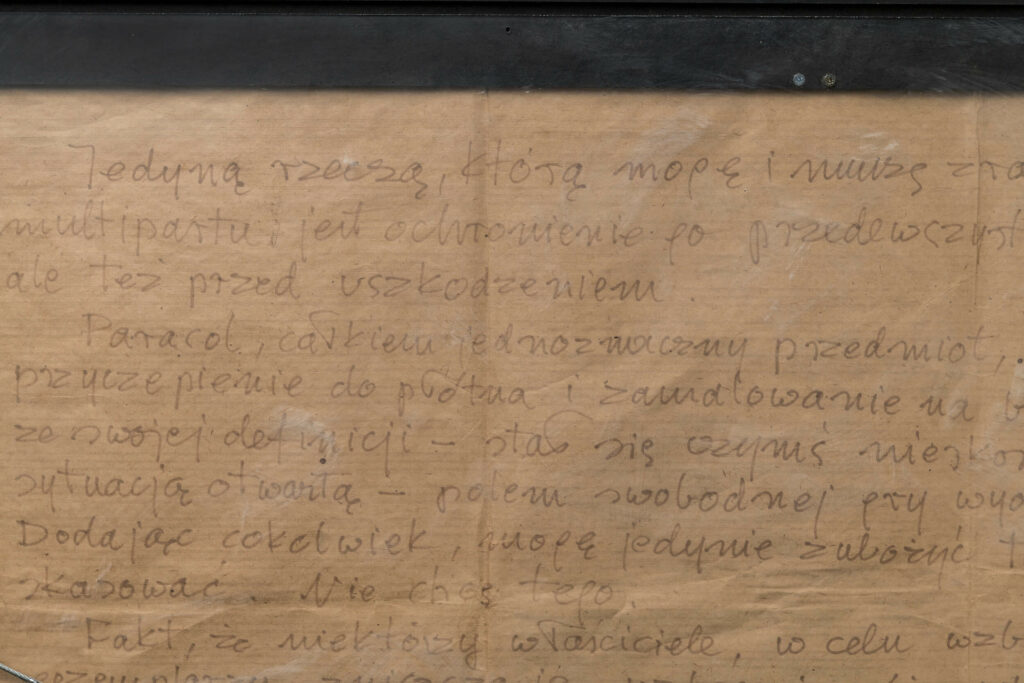 Jedyną rzeczą, którą mogę i muszę
multipartu, jest ochronienie go przedewszyst
ale też przed uszkodzeniem.
Parasol, całkiem jednoznaczny przedmiot,
przyczepienie do płótna i zamalowanie na b
ze swojej definicji – stał się czymś niesko
sytuacją otwartą – polem swobodnej gry wyo
Dodając cokolwiek, mogę jedynie zubożyć
skasować. Nie chcę tego.
Fakt, że niektórzy właściciele, w celu wzb